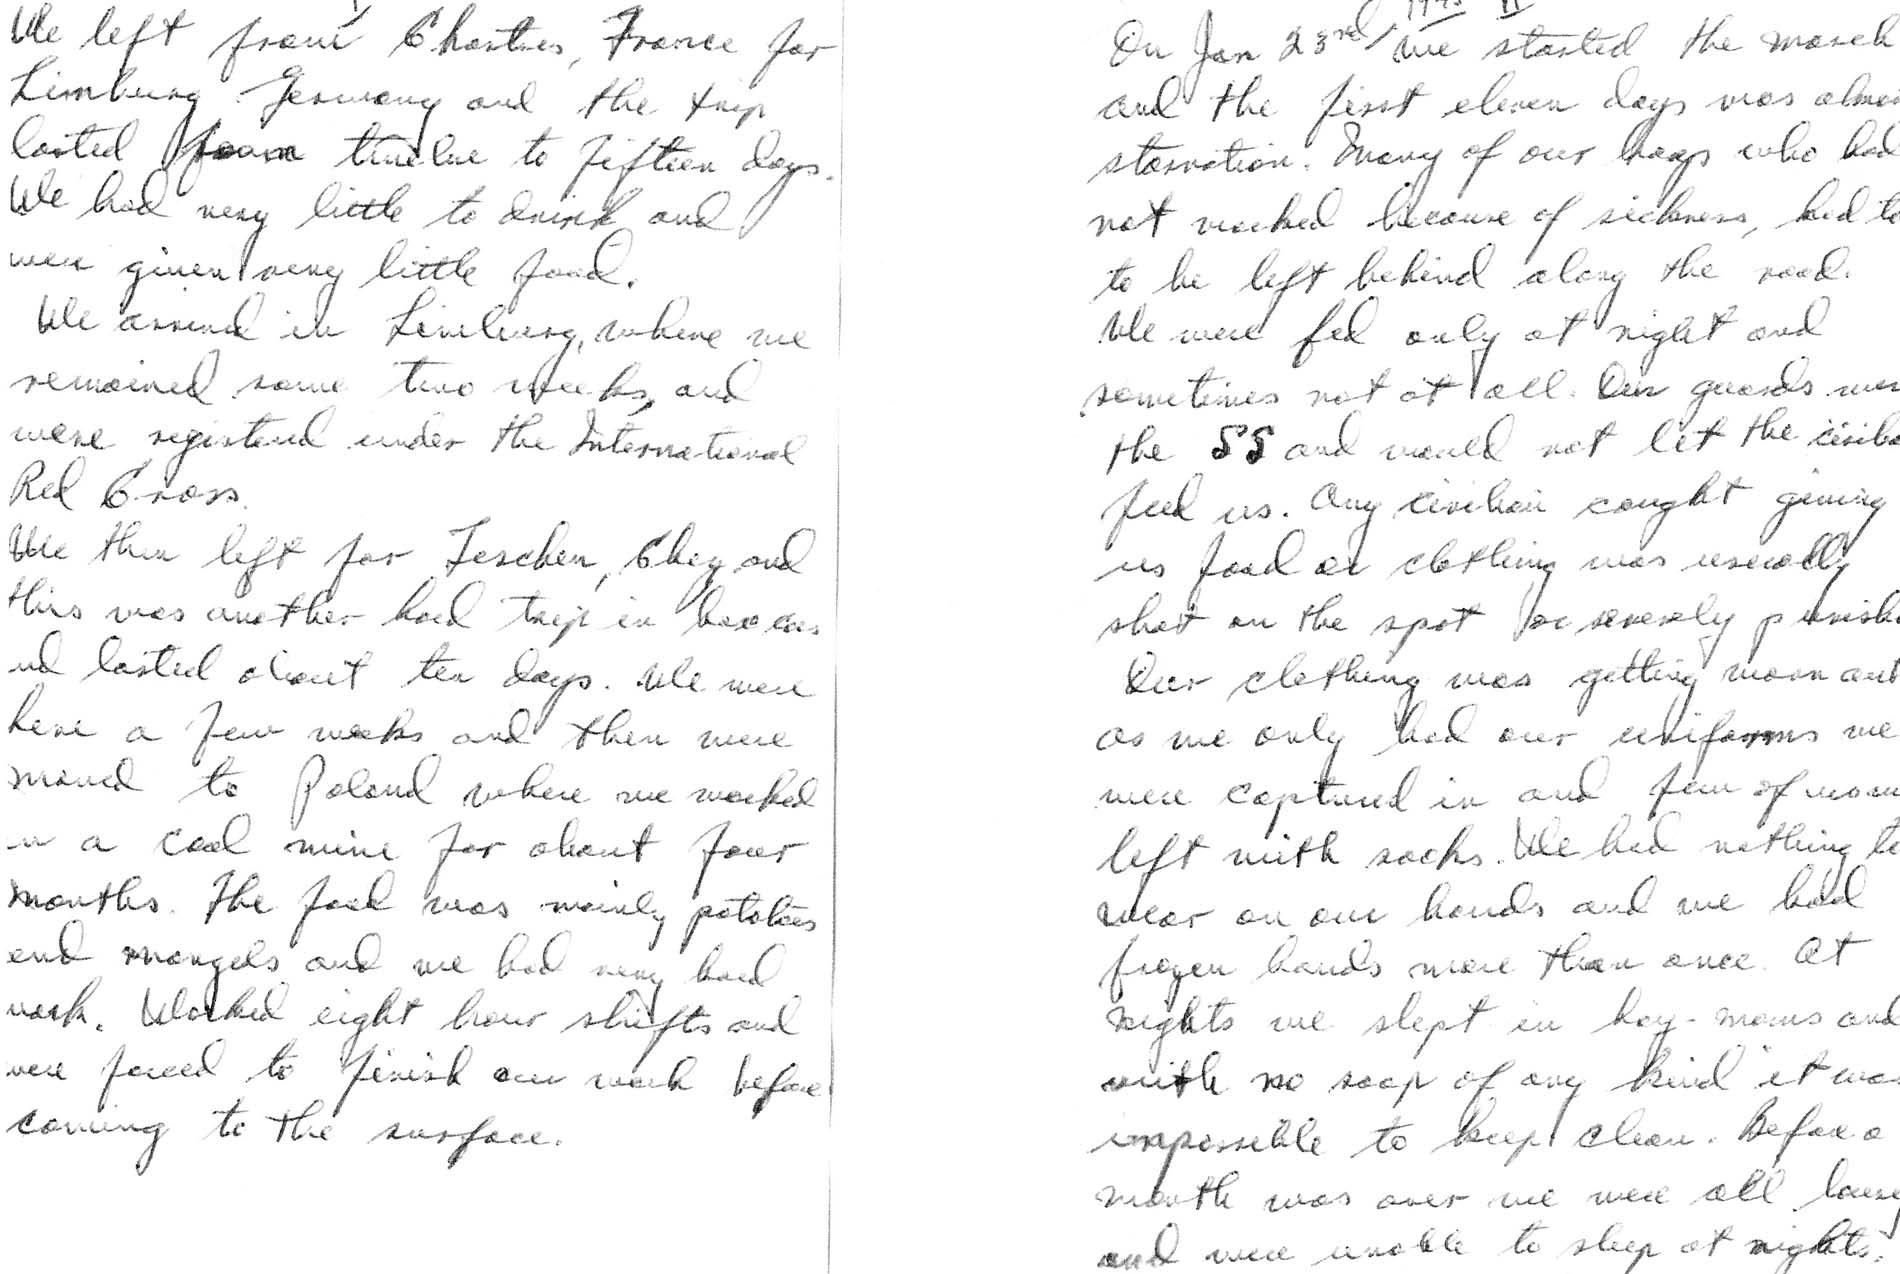 I
We left from Chartres, France for
Limburg Germany and the trip
lasted from twelve to fifteen days.
We had very little to drink and
were given very little food.
We arrived in Limburg, where we
remained some two weeks, and
were registered under the International
Red Cross.
We then left for Teschen, Chez and
this was another hard trip in box cars
nd lasted about ten days. We were
here a few weeks and then were
moved to Poland where we worked
in a coal mine for about four
months. The food was mainly potatoes
and mangels and we had very hard
work. Worked eight hour shifts and
were forced to finish our work before
coming to the surface.
1945 II
On Jan 23rd, we started the march
and the first eleven days was almos
starvation. Many of our boys who had
not worked because of sickness, had to
to be left behind along the road.
We were fed only at night and
sometimes not at all. Our guards wer
the SS and would not let the civilia
feed us. Any civilian caught giving
us food or clothing was usually
shot on the spot or severely punishe
Our clothing was getting worn out
as we only had our uniforms we
were captured in and few of us were
left with socks. We had nothing to
wear on our hands and we had
frozen hands more than once. At
nights we slept in hay-mows and
with no soap of any kind it was
impossible to keep clean. Before a
month was over we were all lousy
and were unable to sleep at nights.